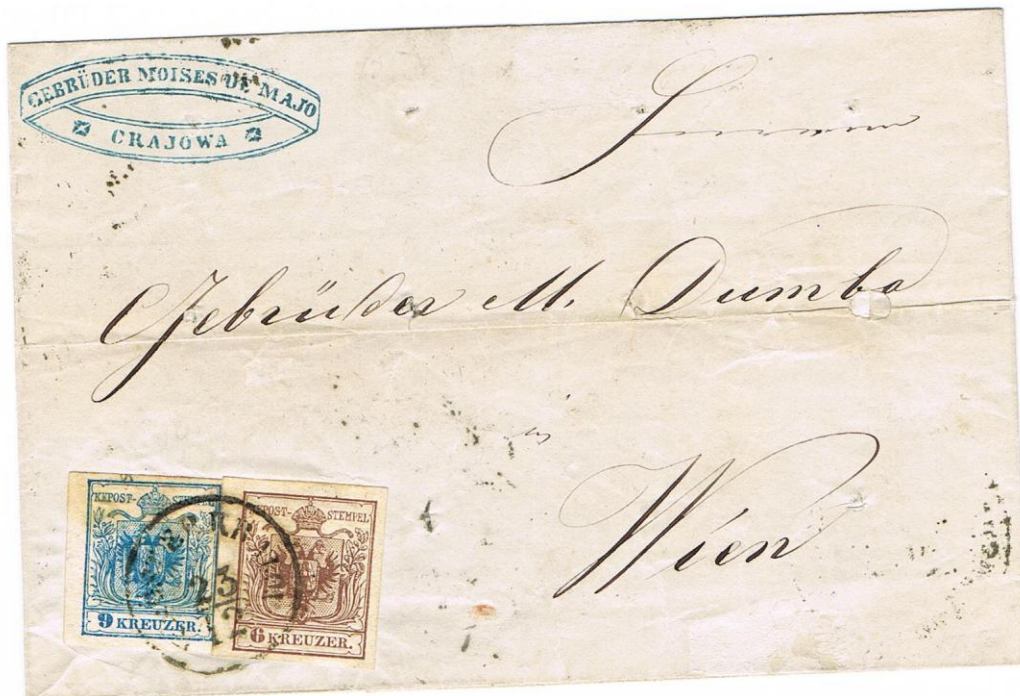 GEBRÜDER MOISES DE MAJO
CRAJOWA
Herren
Gebrüder M. Dumba
in
Wien
KKPOST-STEMPEL
9 KREUZER.
KKPOST-STEMPEL
6 KREUZER.